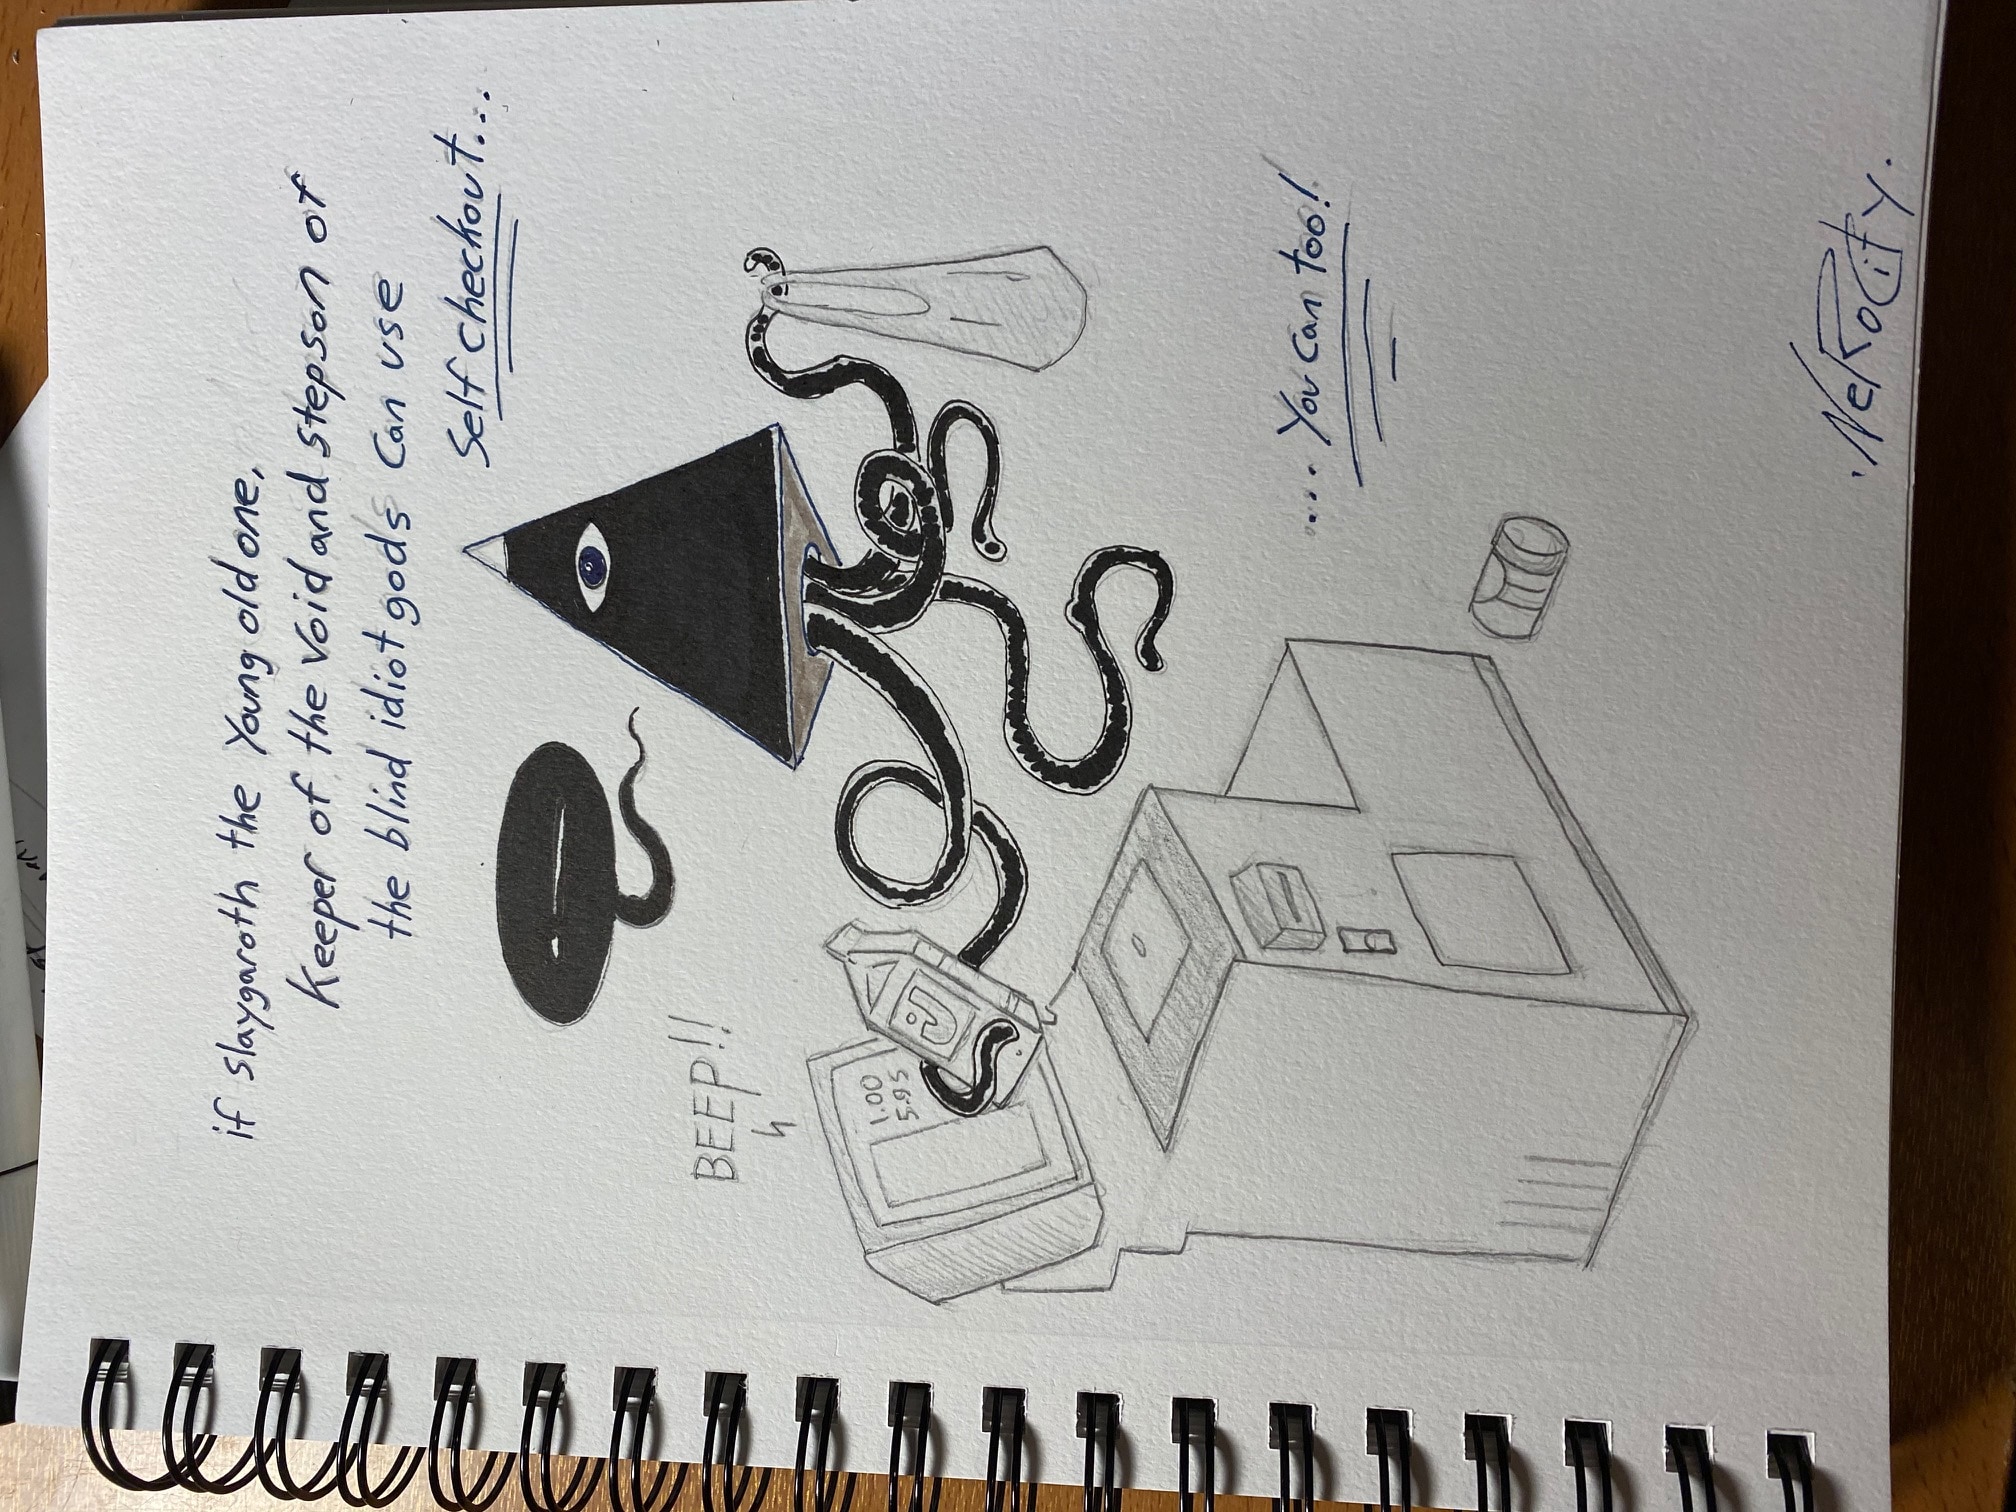 if slaygaroth the Young old one,
Keeper of the Void and stepson of
the blind idiot gods can use
Self checkout...
BEEP!!
1.00
5.95
.... You can too!
NeRocity.